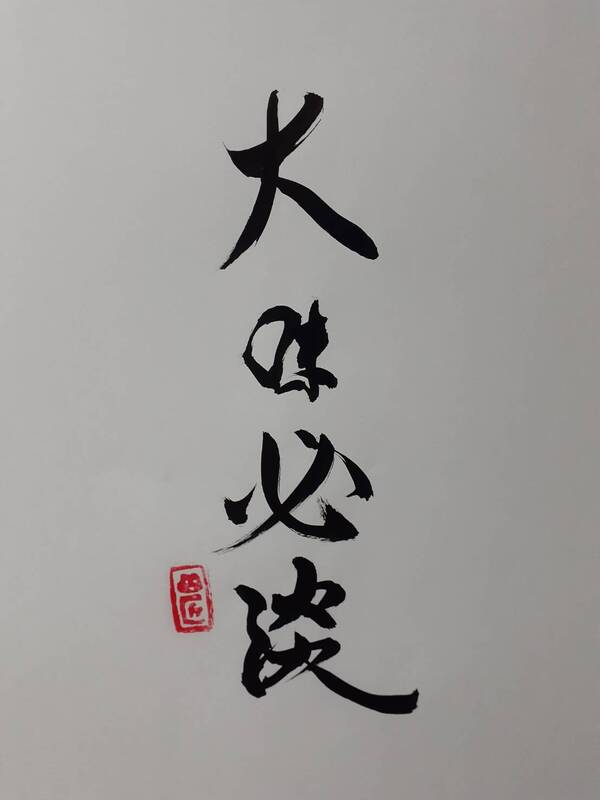 大味必淡